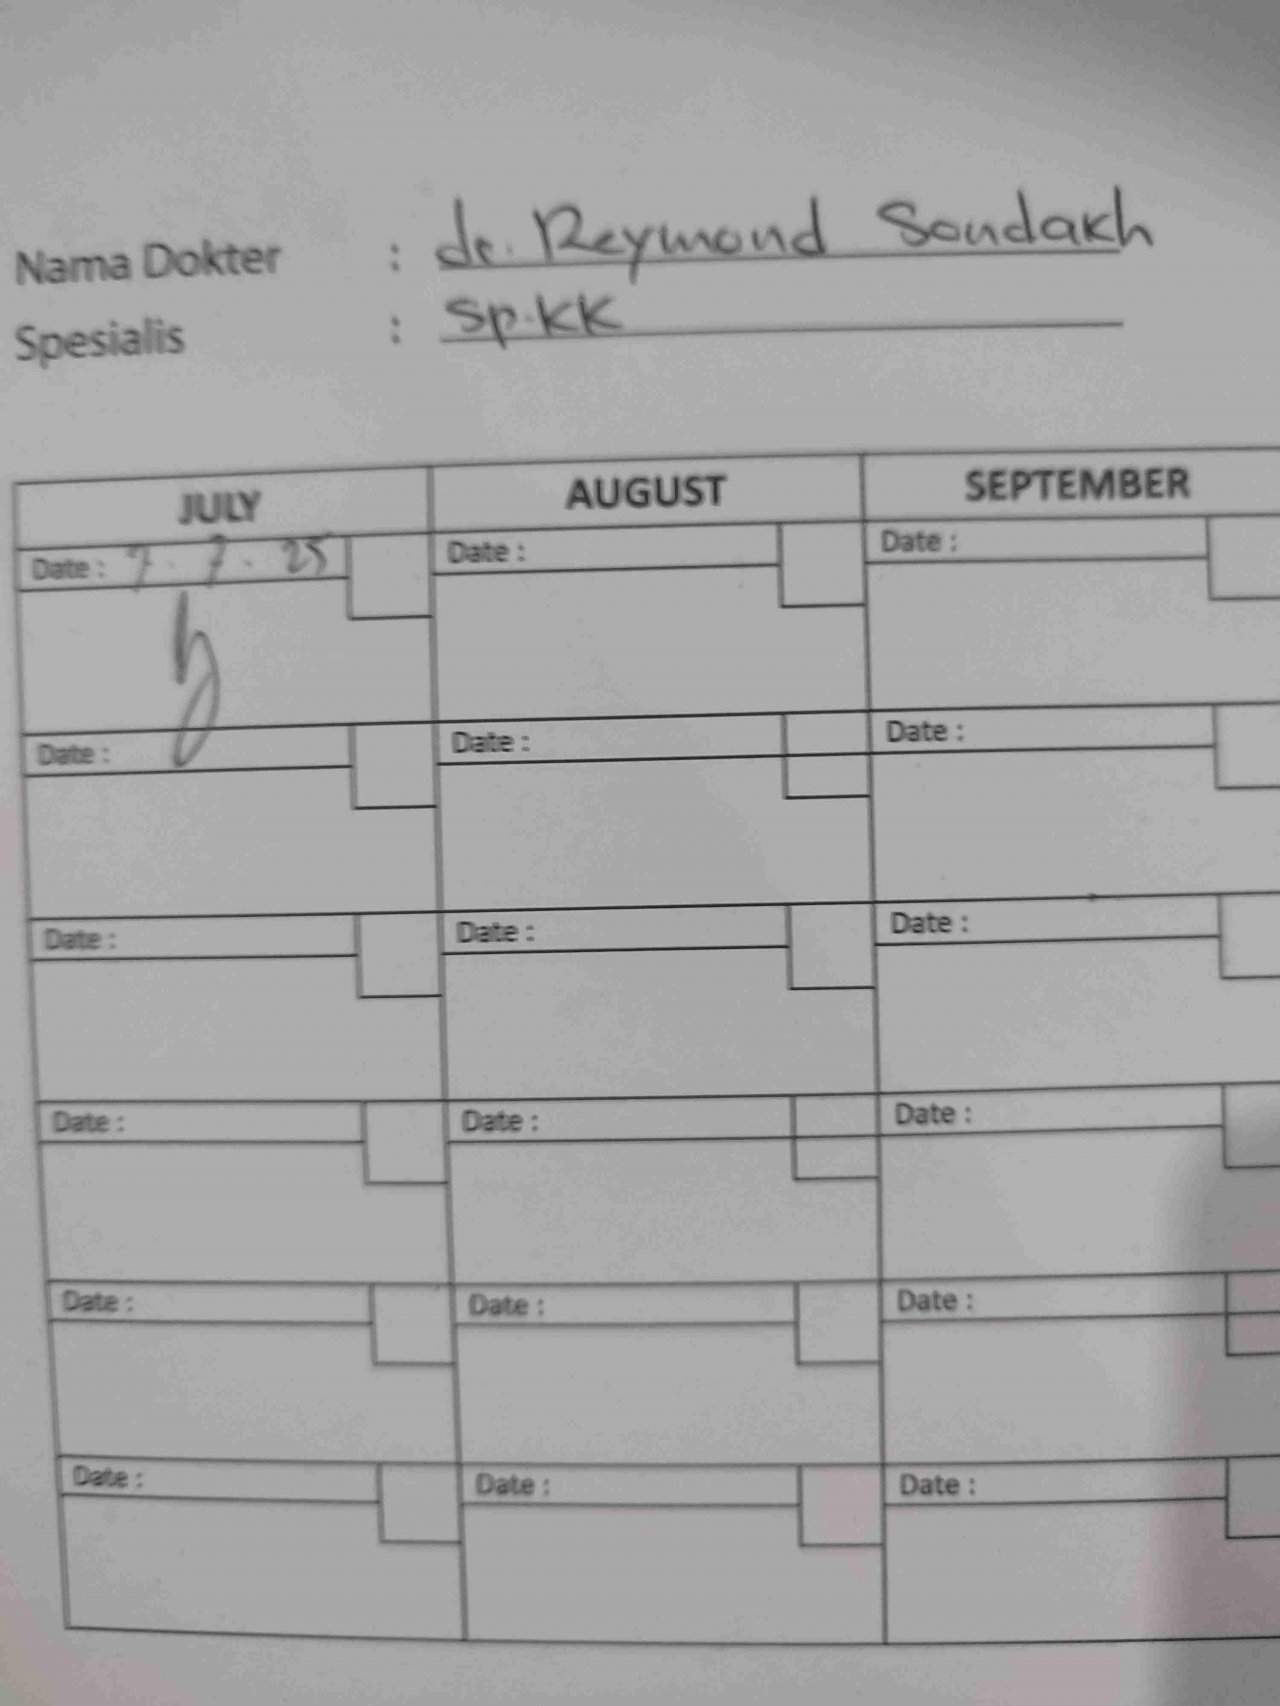 Nama Dokter : dr. Reymond Sondakh
Spesialis : Sp.KK
JULY AUGUST SEPTEMBER
Date : 7.7.25 Date : Date :
Date : Date : Date :
Date : Date : Date :
Date : Date : Date :
Date : Date : Date :
Date : Date : Date :